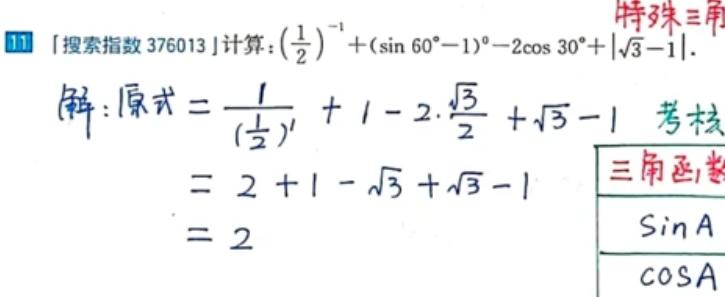 特殊三角
11 「搜索指数 376013」计算:(1/2)⁻¹+(sin 60°−1)⁰−2cos 30°+|√3−1|.
解:原式 = 1/(1/2)¹ + 1 − 2·√3/2 + √3 − 1 考核
= 2 + 1 − √3 + √3 − 1
= 2
三角函数
Sin A
cosA